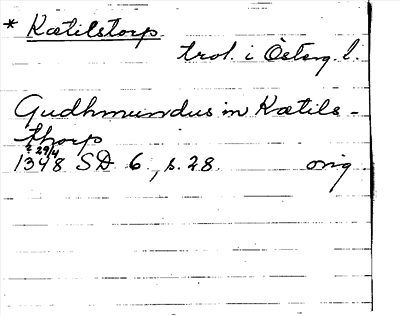 * Kætilstorp
trol. i Österg. l.
Gudhmundus in Kætils-
thorp
29/4
1348 SD 6, s. 28. orig